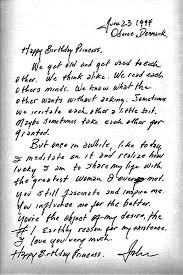 June 23 1994
Odense Denmark
Happy Birthday Princess.
We get old and get used to each
other. We think alike. We read each
others minds. We know what the
other wants without asking. Sometimes
we irritate each other a little bit.
Maybe sometimes take each other for
granted.
But once in awhile, like today
I meditate on it and realize how
lucky I am to share my life with
the greatest woman I ever met.
You still fascinate and inspire me.
You influence me for the better.
You're the object of my desire, the
#1 Earthly reason for my existence.
I love you very much.
Happy Birthday Princess. John